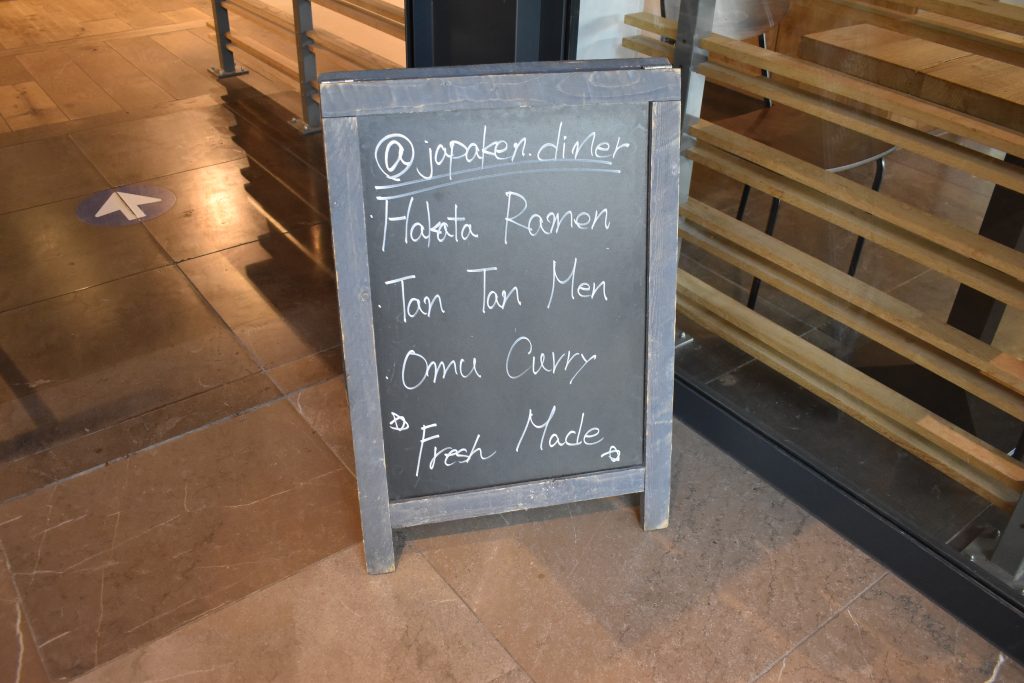 @japaken.diner
· Hakata Ramen
· Tan Tan Men
· Omu Curry
Fresh Made